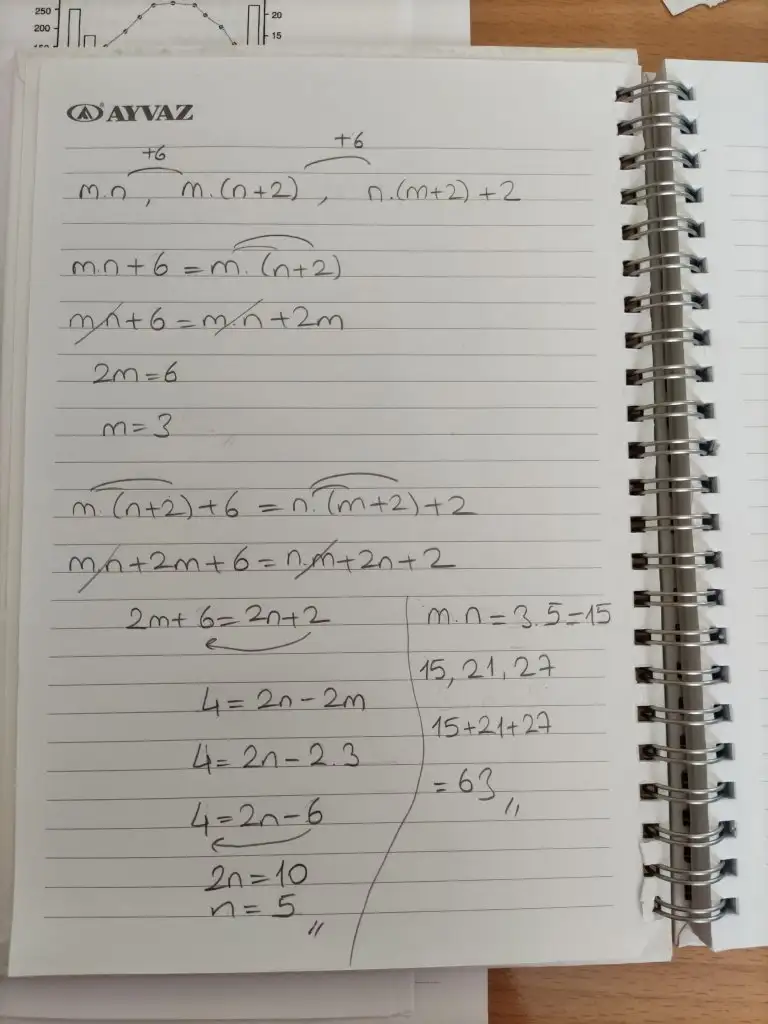 250
200
20
15
AYVAZ
+6 +6
m.n, m.(n+2), n.(m+2)+2
m.n+6=m.(n+2)
mn+6=m.n+2m
2m=6
m=3
m.(n+2)+6=n.(m+2)+2
mn+2m+6=n.m+2n+2
2m+6=2n+2
4=2n-2m
4=2n-2.3
4=2n-6
2n=10
n=5
m.n=3.5=15
15, 21, 27
15+21+27
=63